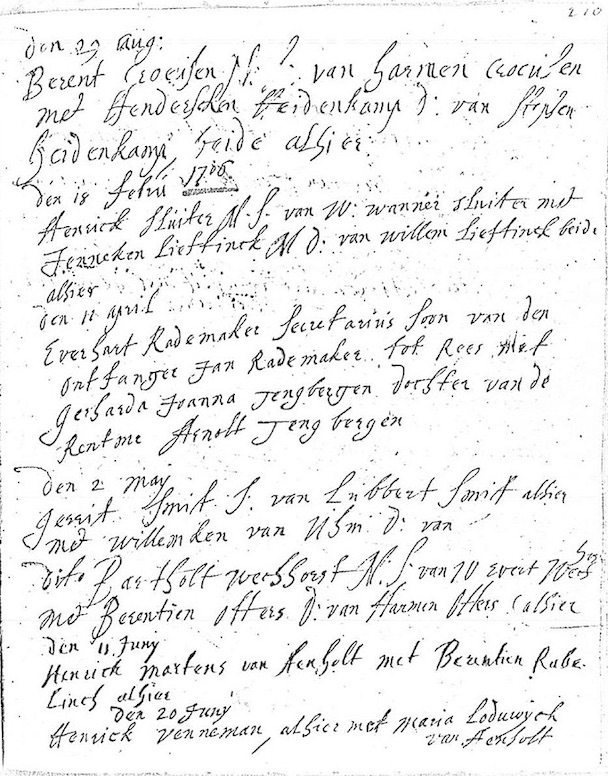 210
den 29 Aug:
Berent Croeusen N: S: van Harmen Croeusen
met Henderschen Heidenkamp D: van Steph
Heidenkamp, beide alhier
den 18 febru 1706
Henrick Sluiter N. S. van W: wanner Sluiter met
Jenneken Lieftinck N D: van willem Lieftinck beide
alhier
den 11 april
Everhart Rademaker Secretarius Soon van den
ontfanger Jan Rademaker tot Rees met
Gerharda Joanna Tengbergen dochter van de
Rentme Arnolt Teng bergen
den 2 May
Gerrit Smit S. van Lubbert Smit alhier
met willemken van Ulm D: van
dito Bartholt wechhorst N: S: van W Evert Wech
horst
met Berentien Otters D: van Harmen Otters alhier
den 11 Juny
Henrick Martens van Aenholt met Berentien Rabe-
linck alhier
den 20 Juny
Henrick Venneman, alhier met Maria Loduwych
van Aenholt